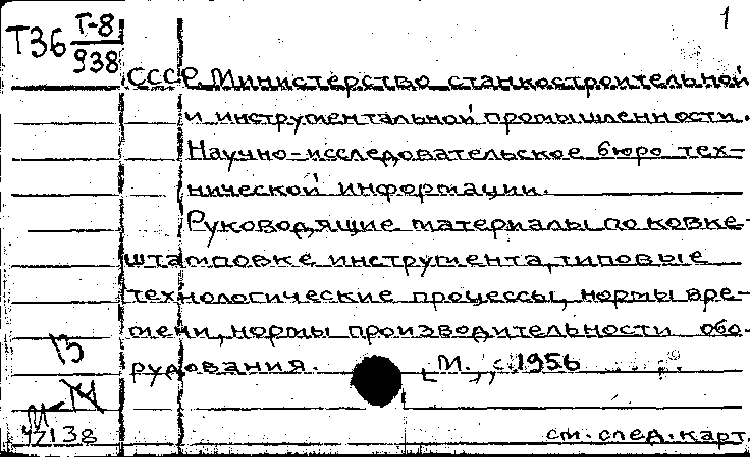 1
Т36 Т-8/938
СССР. Министерство станкостроительной
и инструментальной промышленности.
Научно-исследовательское бюро тех-
нической информации.
Руководящие материалы по ковке-
штамповке инструмента, типовые
технологические процессы, нормы вре-
мени, нормы производительности обо-
рудования. [М.], 1956
13
47138
см. след. карт